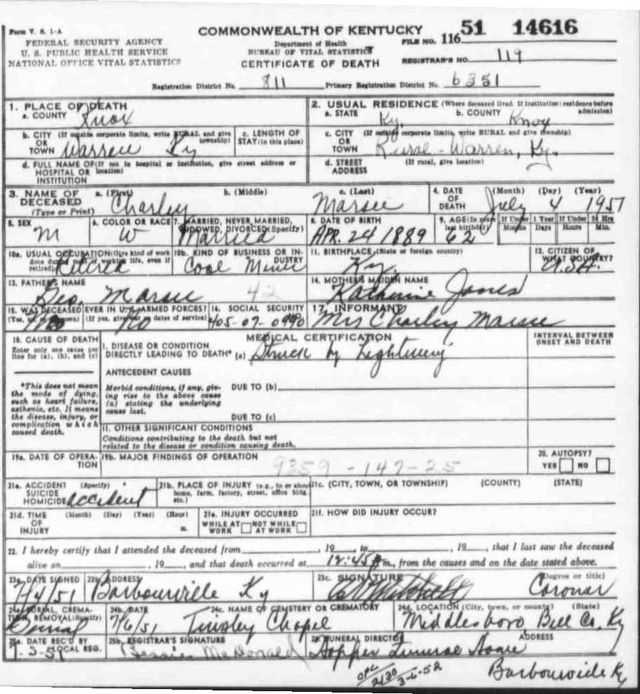 Form V. S. 1-A
FEDERAL SECURITY AGENCY
U. S. PUBLIC HEALTH SERVICE
NATIONAL OFFICE VITAL STATISTICS
COMMONWEALTH OF KENTUCKY
Department of Health
BUREAU OF VITAL STATISTICS
CERTIFICATE OF DEATH
FILE NO. 116 51 14616
REGISTRAR'S NO. 119
Registration District No. 811 Primary Registration District No. 6351
1. PLACE OF DEATH
a. COUNTY Knox
2. USUAL RESIDENCE (Where deceased lived. If institution: residence before admission)
a. STATE Ky. b. COUNTY Knox
b. CITY (If outside corporate limits, write RURAL and give township) OR TOWN Warren Ky
c. LENGTH OF STAY (in this place)
c. CITY (If outside corporate limits, write RURAL and give township) OR TOWN Rural-Warren, Ky.
d. FULL NAME OF (If not in hospital or institution, give street address or location) HOSPITAL OR INSTITUTION
d. STREET ADDRESS (If rural, give location)
3. NAME OF DECEASED (Type or Print)
a. (First) Charley b. (Middle) c. (Last) Marsee
4. DATE OF DEATH (Month) (Day) (Year) July 4 1951
5. SEX M
6. COLOR OR RACE W
7. MARRIED, NEVER MARRIED, WIDOWED, DIVORCED (Specify) Married
8. DATE OF BIRTH APR. 24 1889
9. AGE (In years last birthday) 62 If Under 1 Year Months Days If Under 24 Hrs Hours Min.
10a. USUAL OCCUPATION (Give kind of work done during most of working life, even if retired) Retired
10b. KIND OF BUSINESS OR INDUSTRY Coal Miner
11. BIRTHPLACE (State or foreign country) Ky.
12. CITIZEN OF WHAT COUNTRY? U.S.A.
13. FATHER'S NAME Geo. Marsee 42
14. MOTHER'S MAIDEN NAME Katherine Jones
15. WAS DECEASED EVER IN U. S. ARMED FORCES? No
16. SOCIAL SECURITY
17. INFORMANT Mrs Charley Marsee
18. CAUSE OF DEATH
Enter only one cause per line for (a), (b), and (c)
MEDICAL CERTIFICATION
INTERVAL BETWEEN ONSET AND DEATH
I. DISEASE OR CONDITION DIRECTLY LEADING TO DEATH* (a) Struck by Lightning
*This does not mean the mode of dying, such as heart failure, asthenia, etc. It means the disease, injury, or complication which caused death.
ANTECEDENT CAUSES
Morbid conditions, if any, giving rise to the above cause (a) stating the underlying cause last.
DUE TO (b)
DUE TO (c)
II. OTHER SIGNIFICANT CONDITIONS
Conditions contributing to the death but not related to the disease or condition causing death.
19a. DATE OF OPERATION
19b. MAJOR FINDINGS OF OPERATION
9359-147-25
20. AUTOPSY? YES NO
21a. ACCIDENT SUICIDE HOMICIDE (Specify) accident
21b. PLACE OF INJURY (e.g., in or about home, farm, factory, street, office bldg. etc.)
21c. (CITY, TOWN, OR TOWNSHIP) (COUNTY) (STATE)
21d. TIME OF INJURY (Month) (Day) (Year) (Hour)
21e. INJURY OCCURRED WHILE AT WORK NOT WHILE AT WORK
21f. HOW DID INJURY OCCUR?
22. I hereby certify that I attended the deceased from , 19 to , 19 , that I last saw the deceased
alive on , 19 , and that death occurred at 12:45 m., from the causes and on the date stated above.
23a. DATE SIGNED 7/4/51
23b. ADDRESS Barbourville Ky
23c. SIGNATURE (Degree or title) Mitchell Coronar
24a. BURIAL, CREMATION, REMOVAL (Specify) Burial
24b. DATE 7/6/51
24c. NAME OF CEMETERY OR CREMATORY Tinsley Chapel
24d. LOCATION (City, town, or county) (State) Middlesboro Bell Co. Ky
25a. DATE REC'D BY LOCAL REG.
25b. REGISTRAR'S SIGNATURE Bessie McDonald
26. FUNERAL DIRECTOR ADDRESS
Hopper Funeral Home
Barbourville Ky
2130
3-6-52